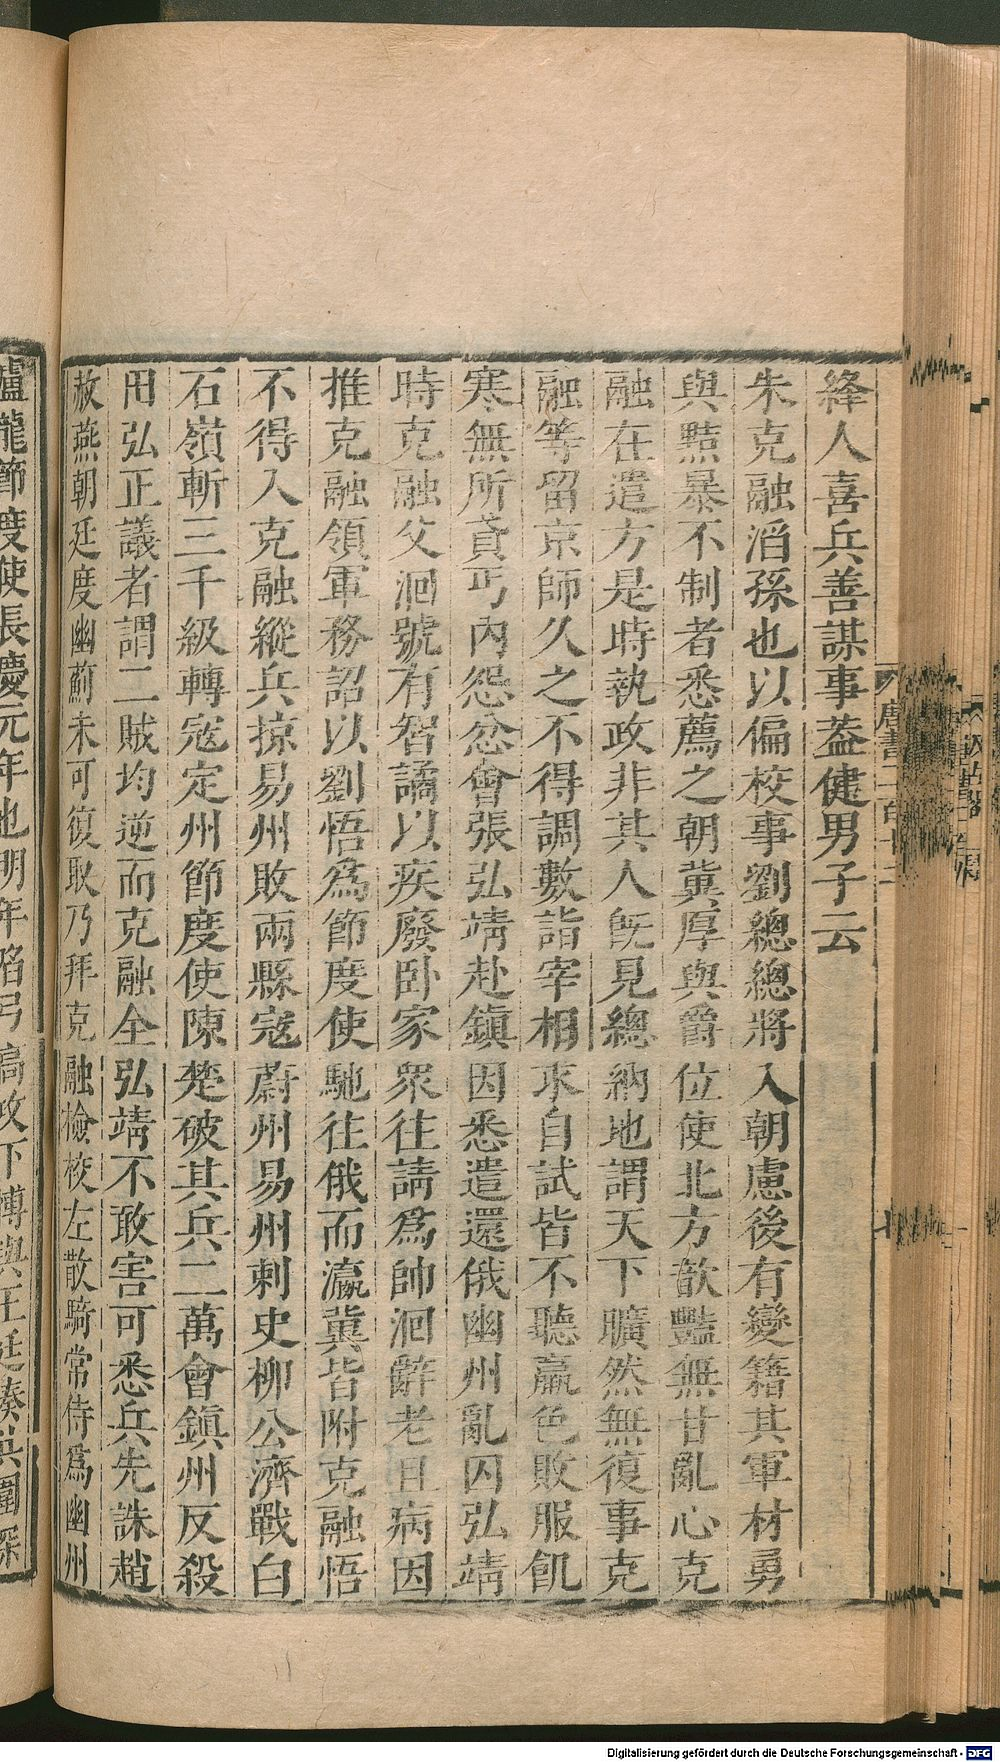 絳人喜兵善謀事葢健男子云
朱克融滔孫也以偏校事劉總總將入朝慮後有變籍其軍材勇
與黠暴不制者悉薦之朝冀厚與爵位使北方歆豔無甘亂心克
融在遣方是時執政非其人旣見總納地謂天下曠然無復事克
融等留京師久之不得調數詣宰相求自試皆不聽羸色敗服飢
寒無所貣丐內怨忿會張弘靖赴鎭因悉遣還俄幽州亂囚弘靖
時克融父洄號有智譎以疾廢卧家衆往請爲帥洄辭老且病因
推克融領軍務詔以劉悟爲節度使馳往俄而瀛冀皆附克融悟
不得入克融縱兵掠易州敗兩縣寇蔚州易州刺史柳公濟戰白
石嶺斬三千級轉寇定州節度使陳楚破其兵二萬會鎭州反殺
田弘正議者謂二賊均逆而克融全弘靖不敢害可悉兵先誅趙
赦燕朝廷度幽薊未可復取乃拜克融檢校左散騎常侍爲幽州
盧龍節度使長慶元年也明年陷弓高攻下博與王廷湊共圍深
Digitalisierung gefördert durch die Deutsche Forschungsgemeinschaft - DFG